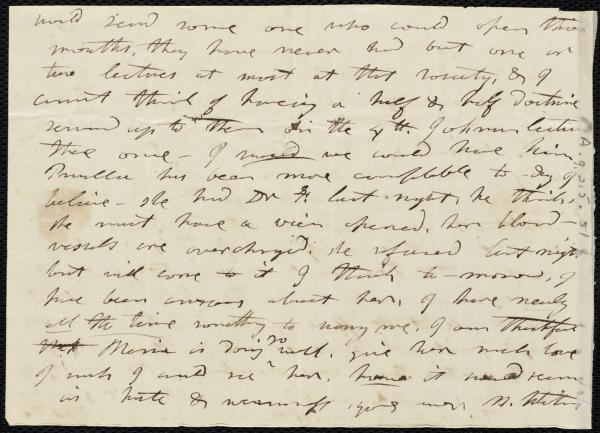 would send some one who could open their
mouths, they have never had but one or
two lectures at most at that society, & I
cannot think of having a half & half doctrine
served up to them on the 4th. Johnson lectur
there once - I would we could have him
Drusilla has been more comfortable to-day I
believe - she had Dr F. last night, he thinks,
she must have a vein opened, her blood-
vessels are overcharged, she refused last night
but will come to it I think to-morrow, I
have been anxious about her, I have nearly
all the time something to worry me, I am thankful
that Maria is doing so well, give her much love
I wish I could see her,
in haste & yours ever